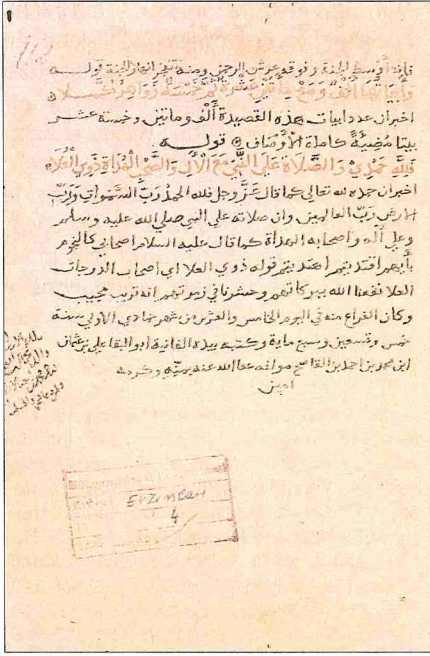 فإنه أوسط الجنة وفوقه عرش الرحمن ومنه تفجر انهار الجنة قوله
وأبياتها ألف ومع مائتين عشرة مع خمسة زواهر
اخبر ان عدد ابيات هذه القصيدة ألف ومائتين وخمسة عشر
بيتا مضيئة كاملة الأوصاف قوله
فلله حمدي والصلاة على النبي مع الآل والصحب الهداة ذوي العلا
اخبر ان حمده لله تعالى كما قال عز وجل فلله الحمد رب السموات ورب
الارض رب العالمين وان صلاته على النبي صلى الله عليه وسلم
وعلى آله واصحابه الهداة كما قال عليه السلام اصحابي كالنجوم
بأيهم اقتديتم اهتديتم قوله ذوي العلا اي اصحاب الدرجات
العلا نفعنا الله ببركاتهم وحشرنا في زمرتهم انه قريب مجيب
وكان الفراغ منه في اليوم الخامس والعشرين من شهر جمادي الاولى سنة
خمس وتسعين وسبع ماية وكتبه بيده الفانية ابو البقا علي بن عثمان
ابن محمد بن احمد بن القاصح مولفه عفا الله عنه بمنه وكرمه
امين
Erzincan
4